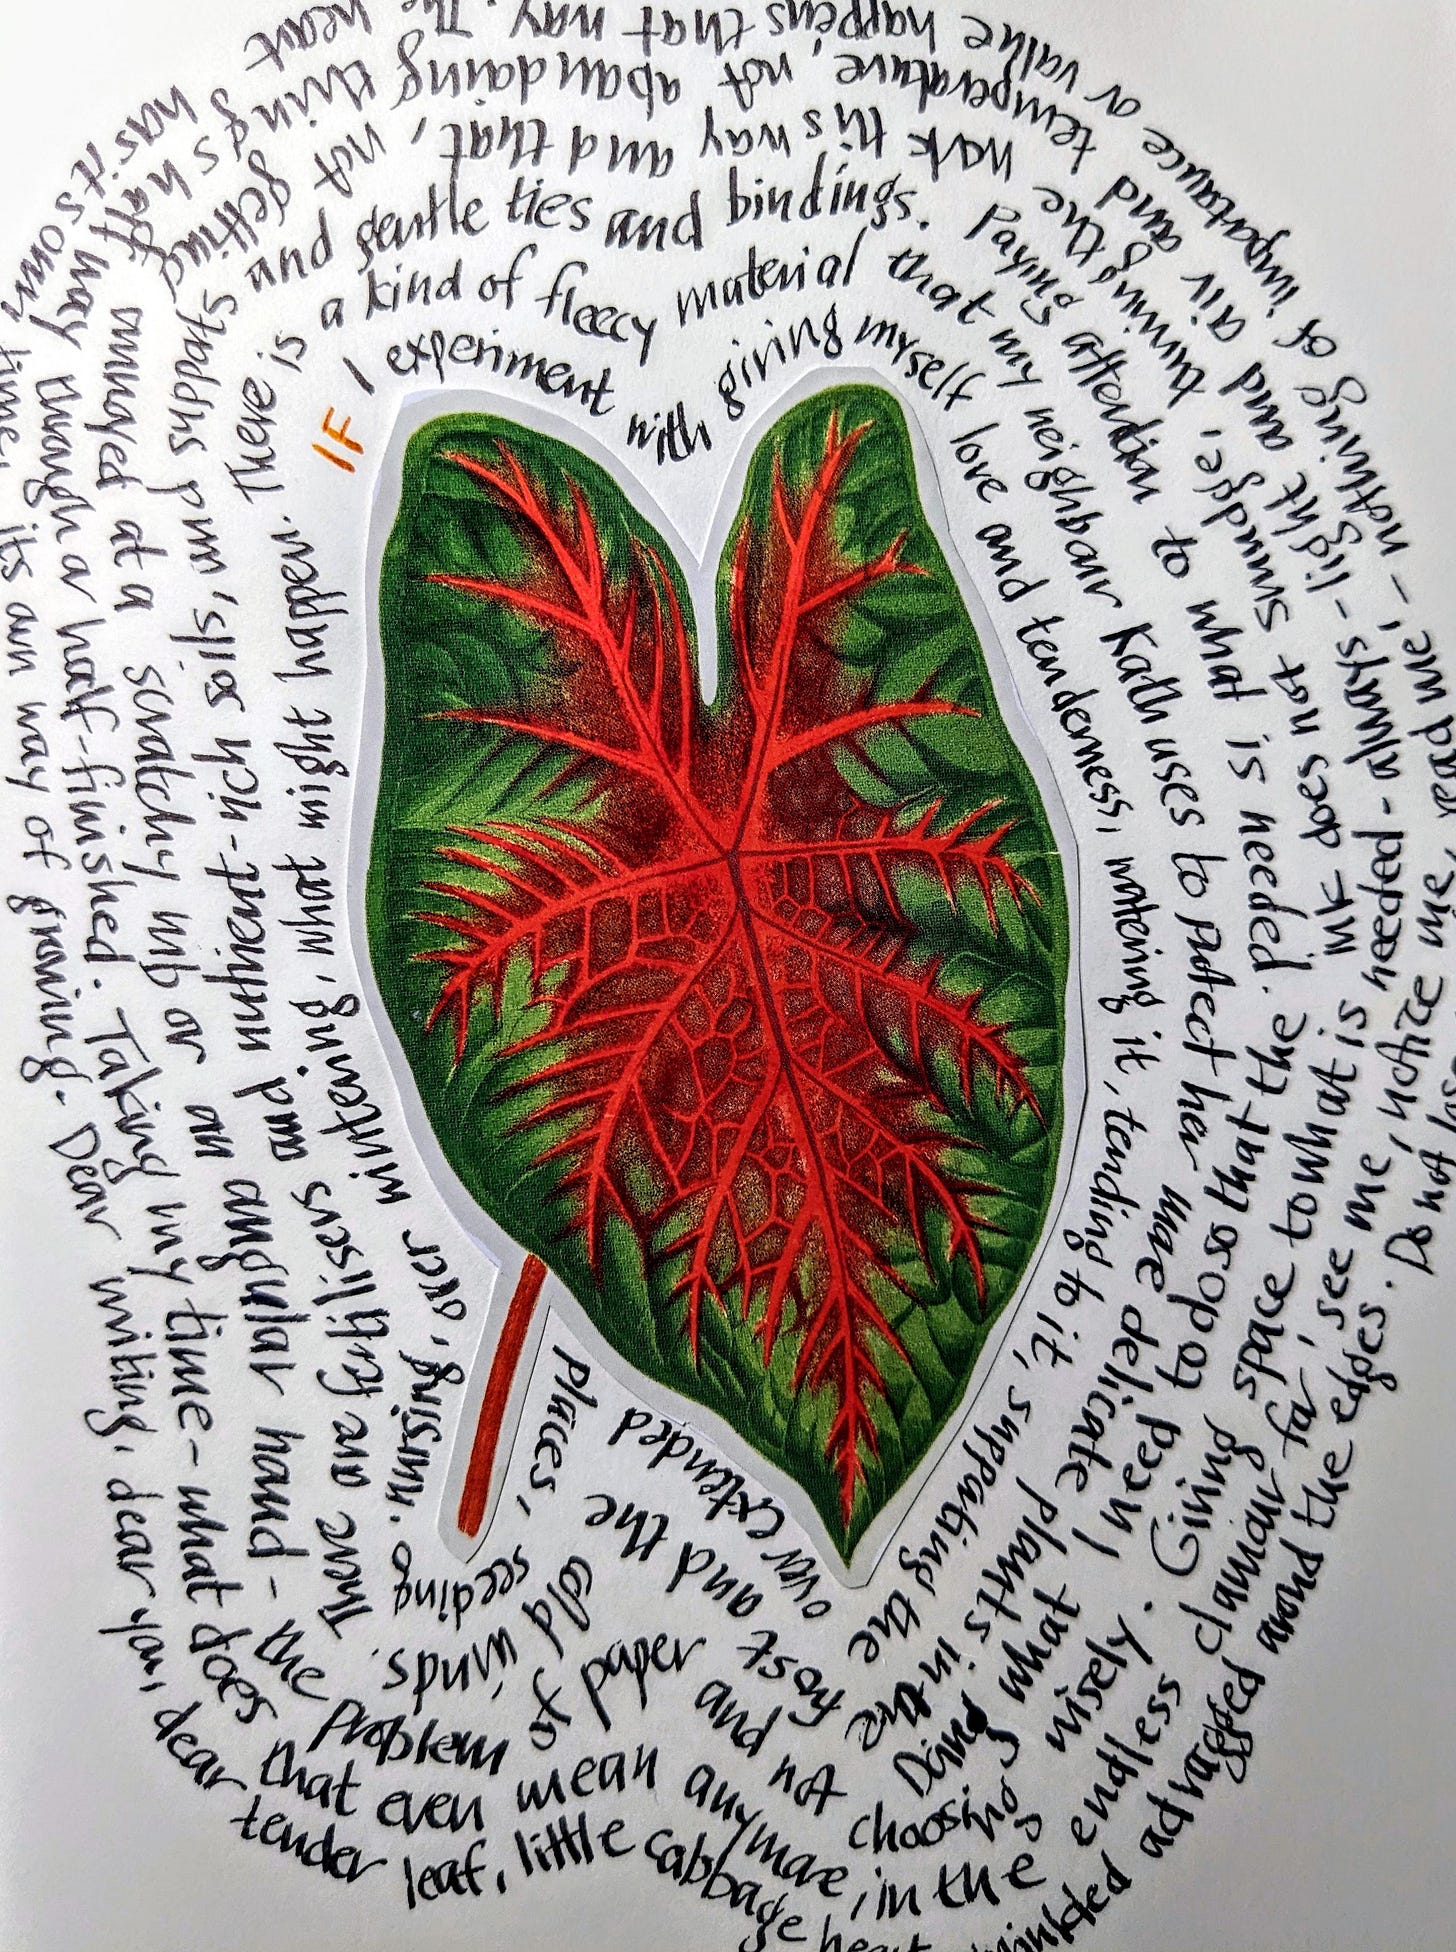 IF I experiment with giving myself love and tenderness, watering it, tending to it, supporting the over extended places, seeding, nursing, over wintering, what might happen.
There is a kind of fleecy material that my neighbour Kath uses to protect her more delicate plants in the frost and the cold winds.
There are fertilisers and nutrient-rich soils, and supports and gentle ties and bindings.
Paying attention to what is needed.
Doing what I need to do so that the ink does not smudge, turning the work this way and that, not getting annoyed at a scratchy nib or an angular hand - the problem to paper and not choosing wisely.
Giving space to what is needed - always - light and air and temperature, not abandoning things half way through a half-finished.
Taking my time - what does that even mean anymore, in the endless clamour for, see me, notice me, read me, - nothing of importance or value happens that way.
The heart has its own time, its own way of growing.
Dear writing, dear you, dear tender leaf, little cabbage heart, wrinkled and ragged around the edges.
Do not